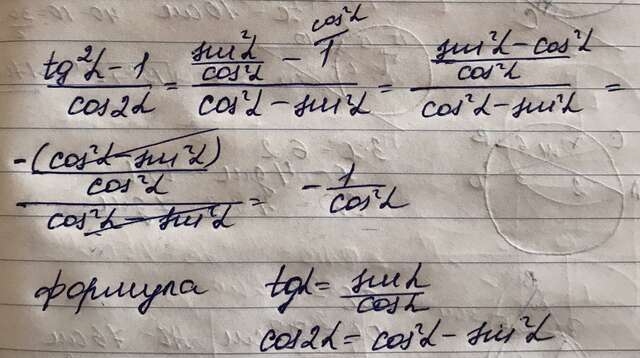 (tg²α - 1)/(cos2α) = (sin²α/cos²α - 1^{cos²α})/(cos²α - sin²α) = ((sin²α - cos²α)/cos²α)/(cos²α - sin²α) =
(-(cos²α - sin²α)/cos²α)/(cos²α - sin²α) = -1/cos²α
формула tgα = sinα/cosα
cos2α = cos²α - sin²α